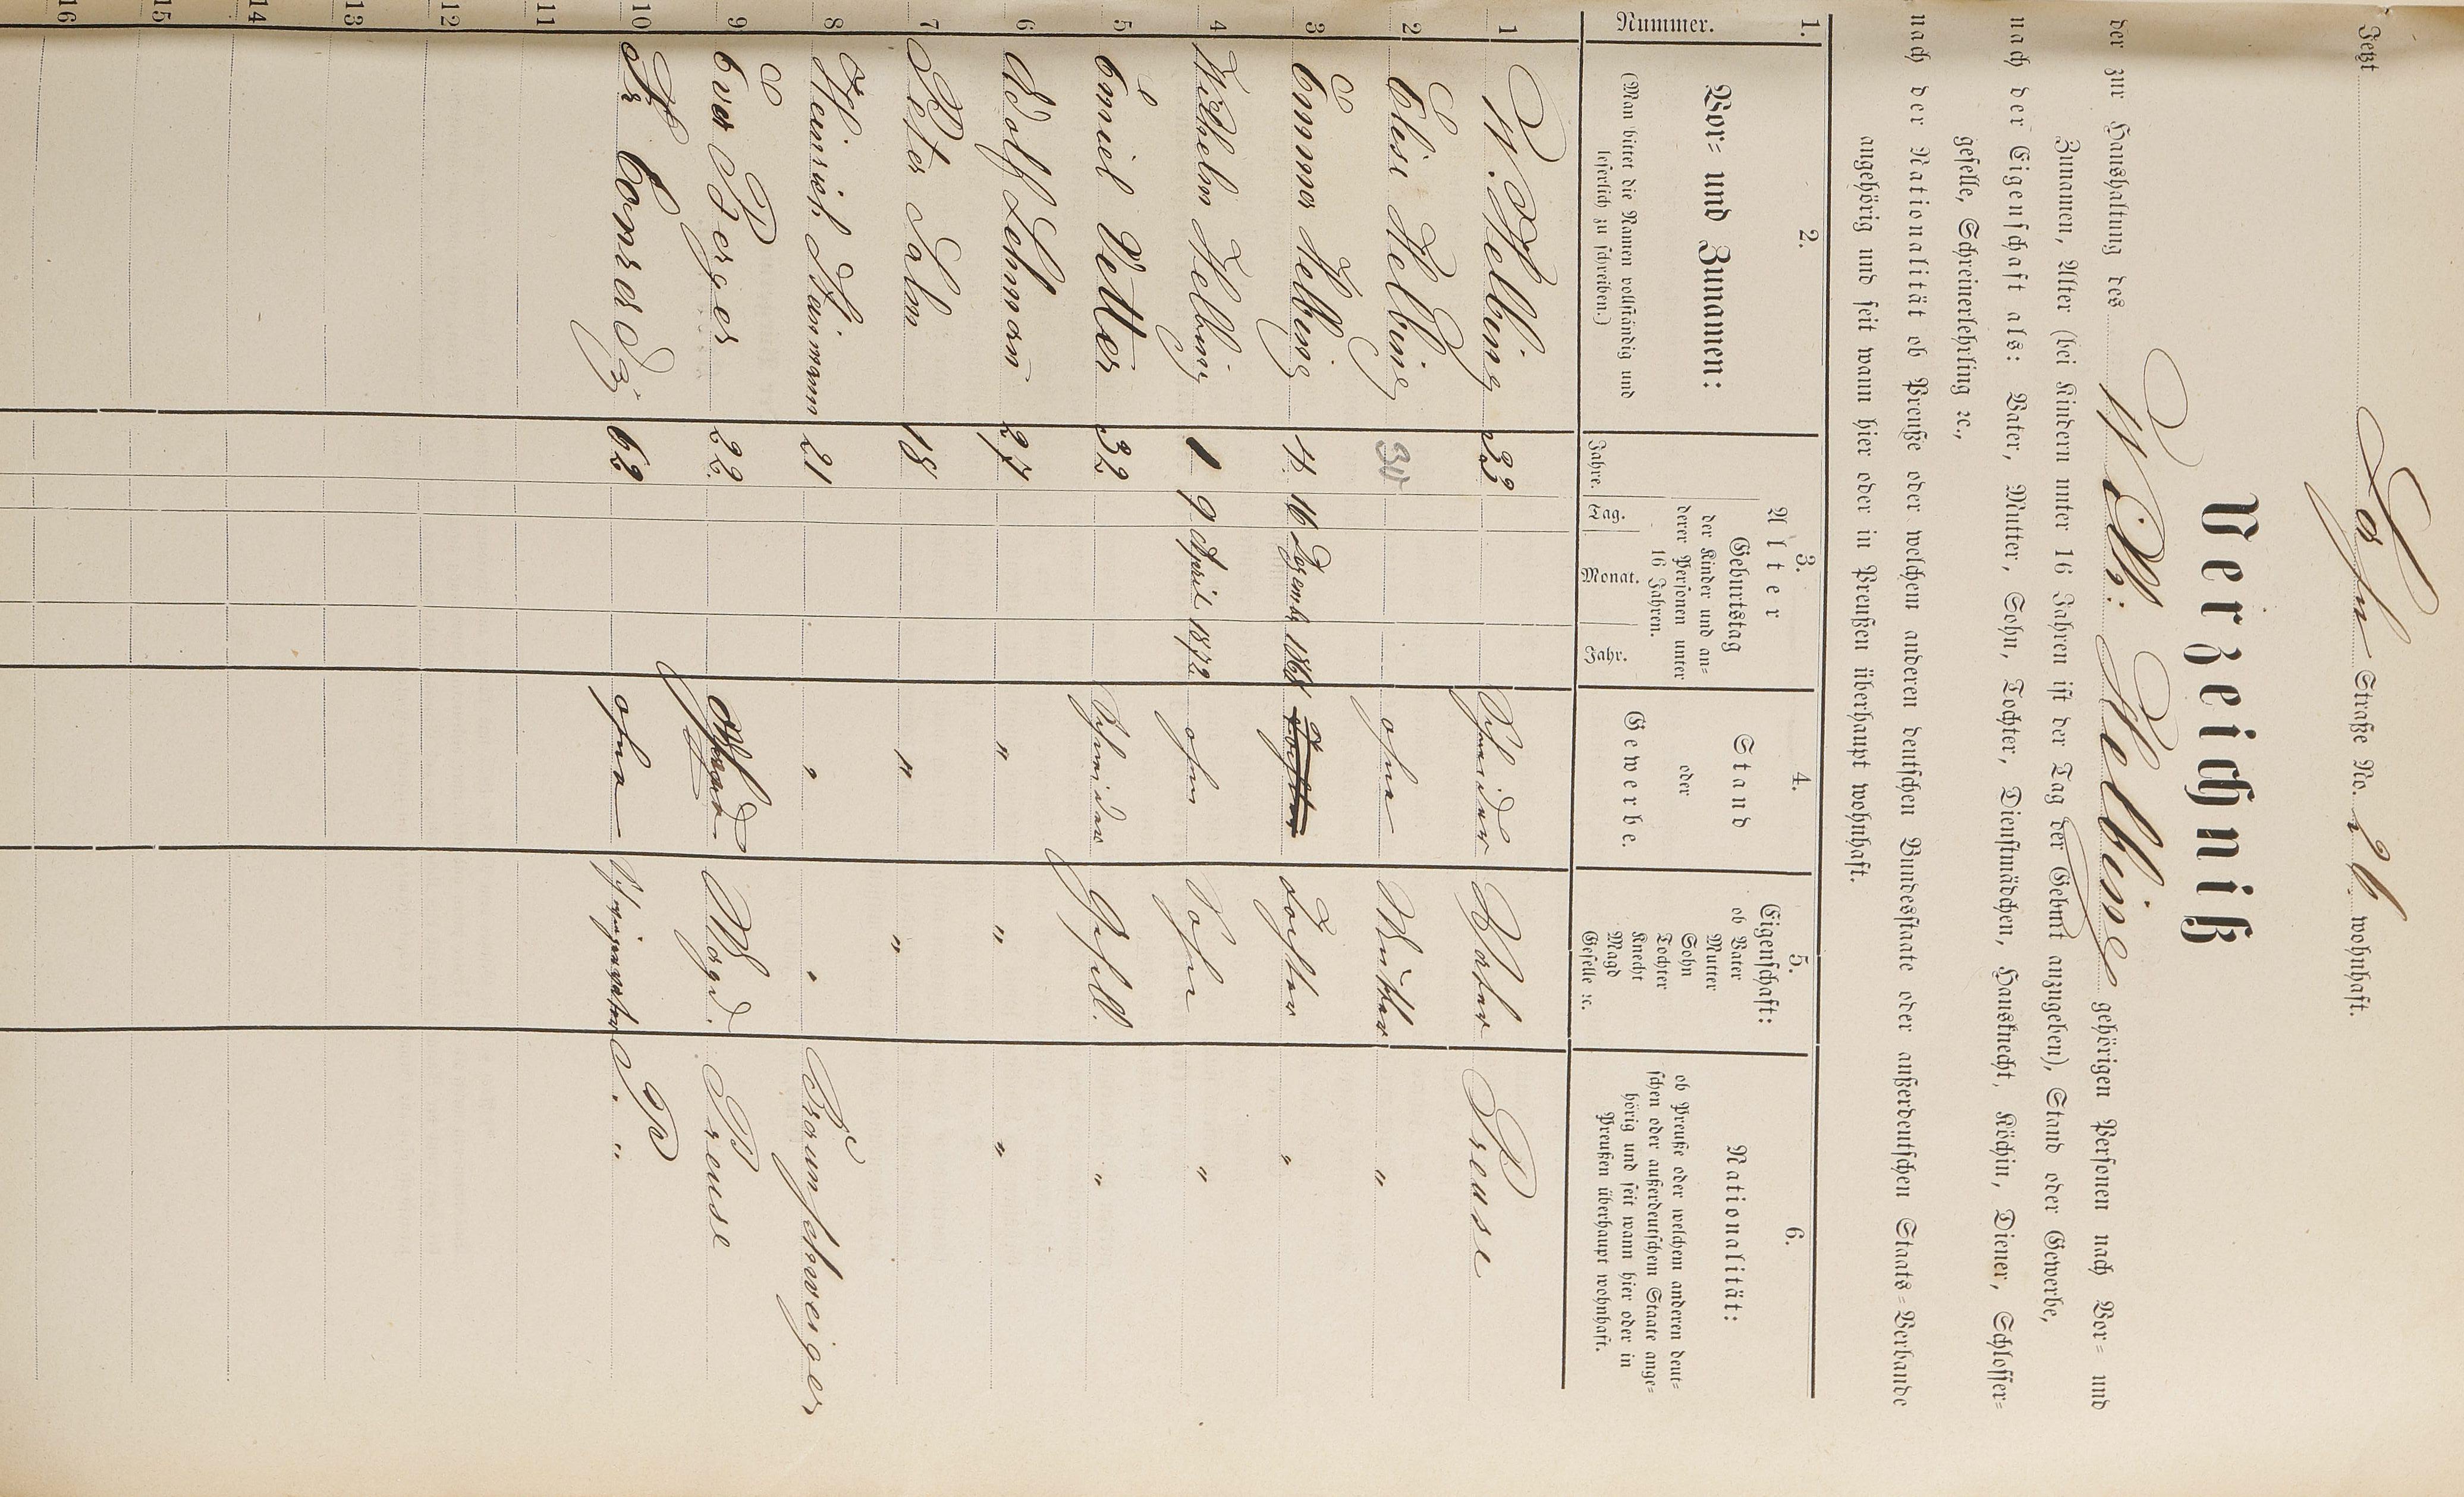 Jetzt Lahn Straße No. 26 wohnhaft.
Verzeichniß
der zur Haushaltung des W. Helbing gehörigen Personen nach Vor= und
Zunamen, Alter (bei Kindern unter 16 Jahren ist der Tag der Geburt anzugeben), Stand oder Gewerbe,
nach der Eigenschaft als: Vater, Mutter, Sohn, Tochter, Dienstmädchen, Hausknecht, Köchin, Diener, Schlosser=
geselle, Schreinerlehrling ꝛc.,
nach der Nationalität ob Preuße oder welchem anderen deutschen Bundesstaate oder außerdeutschen Staats=Verbande
angehörig und seit wann hier oder in Preußen überhaupt wohnhaft.
1. 2. 3. 4. 5. 6.
Nummer.
Vor= und Zunamen:
(Man bittet die Namen vollständig und
leserlich zu schreiben.)
Alter
Jahre.
Geburtstag
der Kinder und an=
derer Personen unter
16 Jahren.
Tag. Monat. Jahr.
Stand
oder
Gewerbe.
Eigenschaft:
ob Vater
Mutter
Sohn
Tochter
Knecht
Magd
Geselle ꝛc.
Nationalität:
ob Preuße oder welchem anderen deut=
schen oder außerdeutschem Staate ange=
hörig und seit wann hier oder in
Preußen überhaupt wohnhaft.
1 W. Helbing 33 Schneider Vater Preuse
2 Elise Helbing 30 ohne Mutter "
3 Emma Helbing 4 16 Dezemb 1868 Tochter "
4 Wilhelm Helbing 1 9 April 1872 ohne Sohn "
5 Emiel Vetter 32 Schneider Gesell. "
6 Adolf Lehman 27 " " "
7 Peter Salm 18 " "
8 Heinrich 21 " " Braunschweiger
9 Eva Berger 22 Magd. Preuse
10 Fr Conrady 62 ohne Schwiegervater "
11
12
13
14
15
16